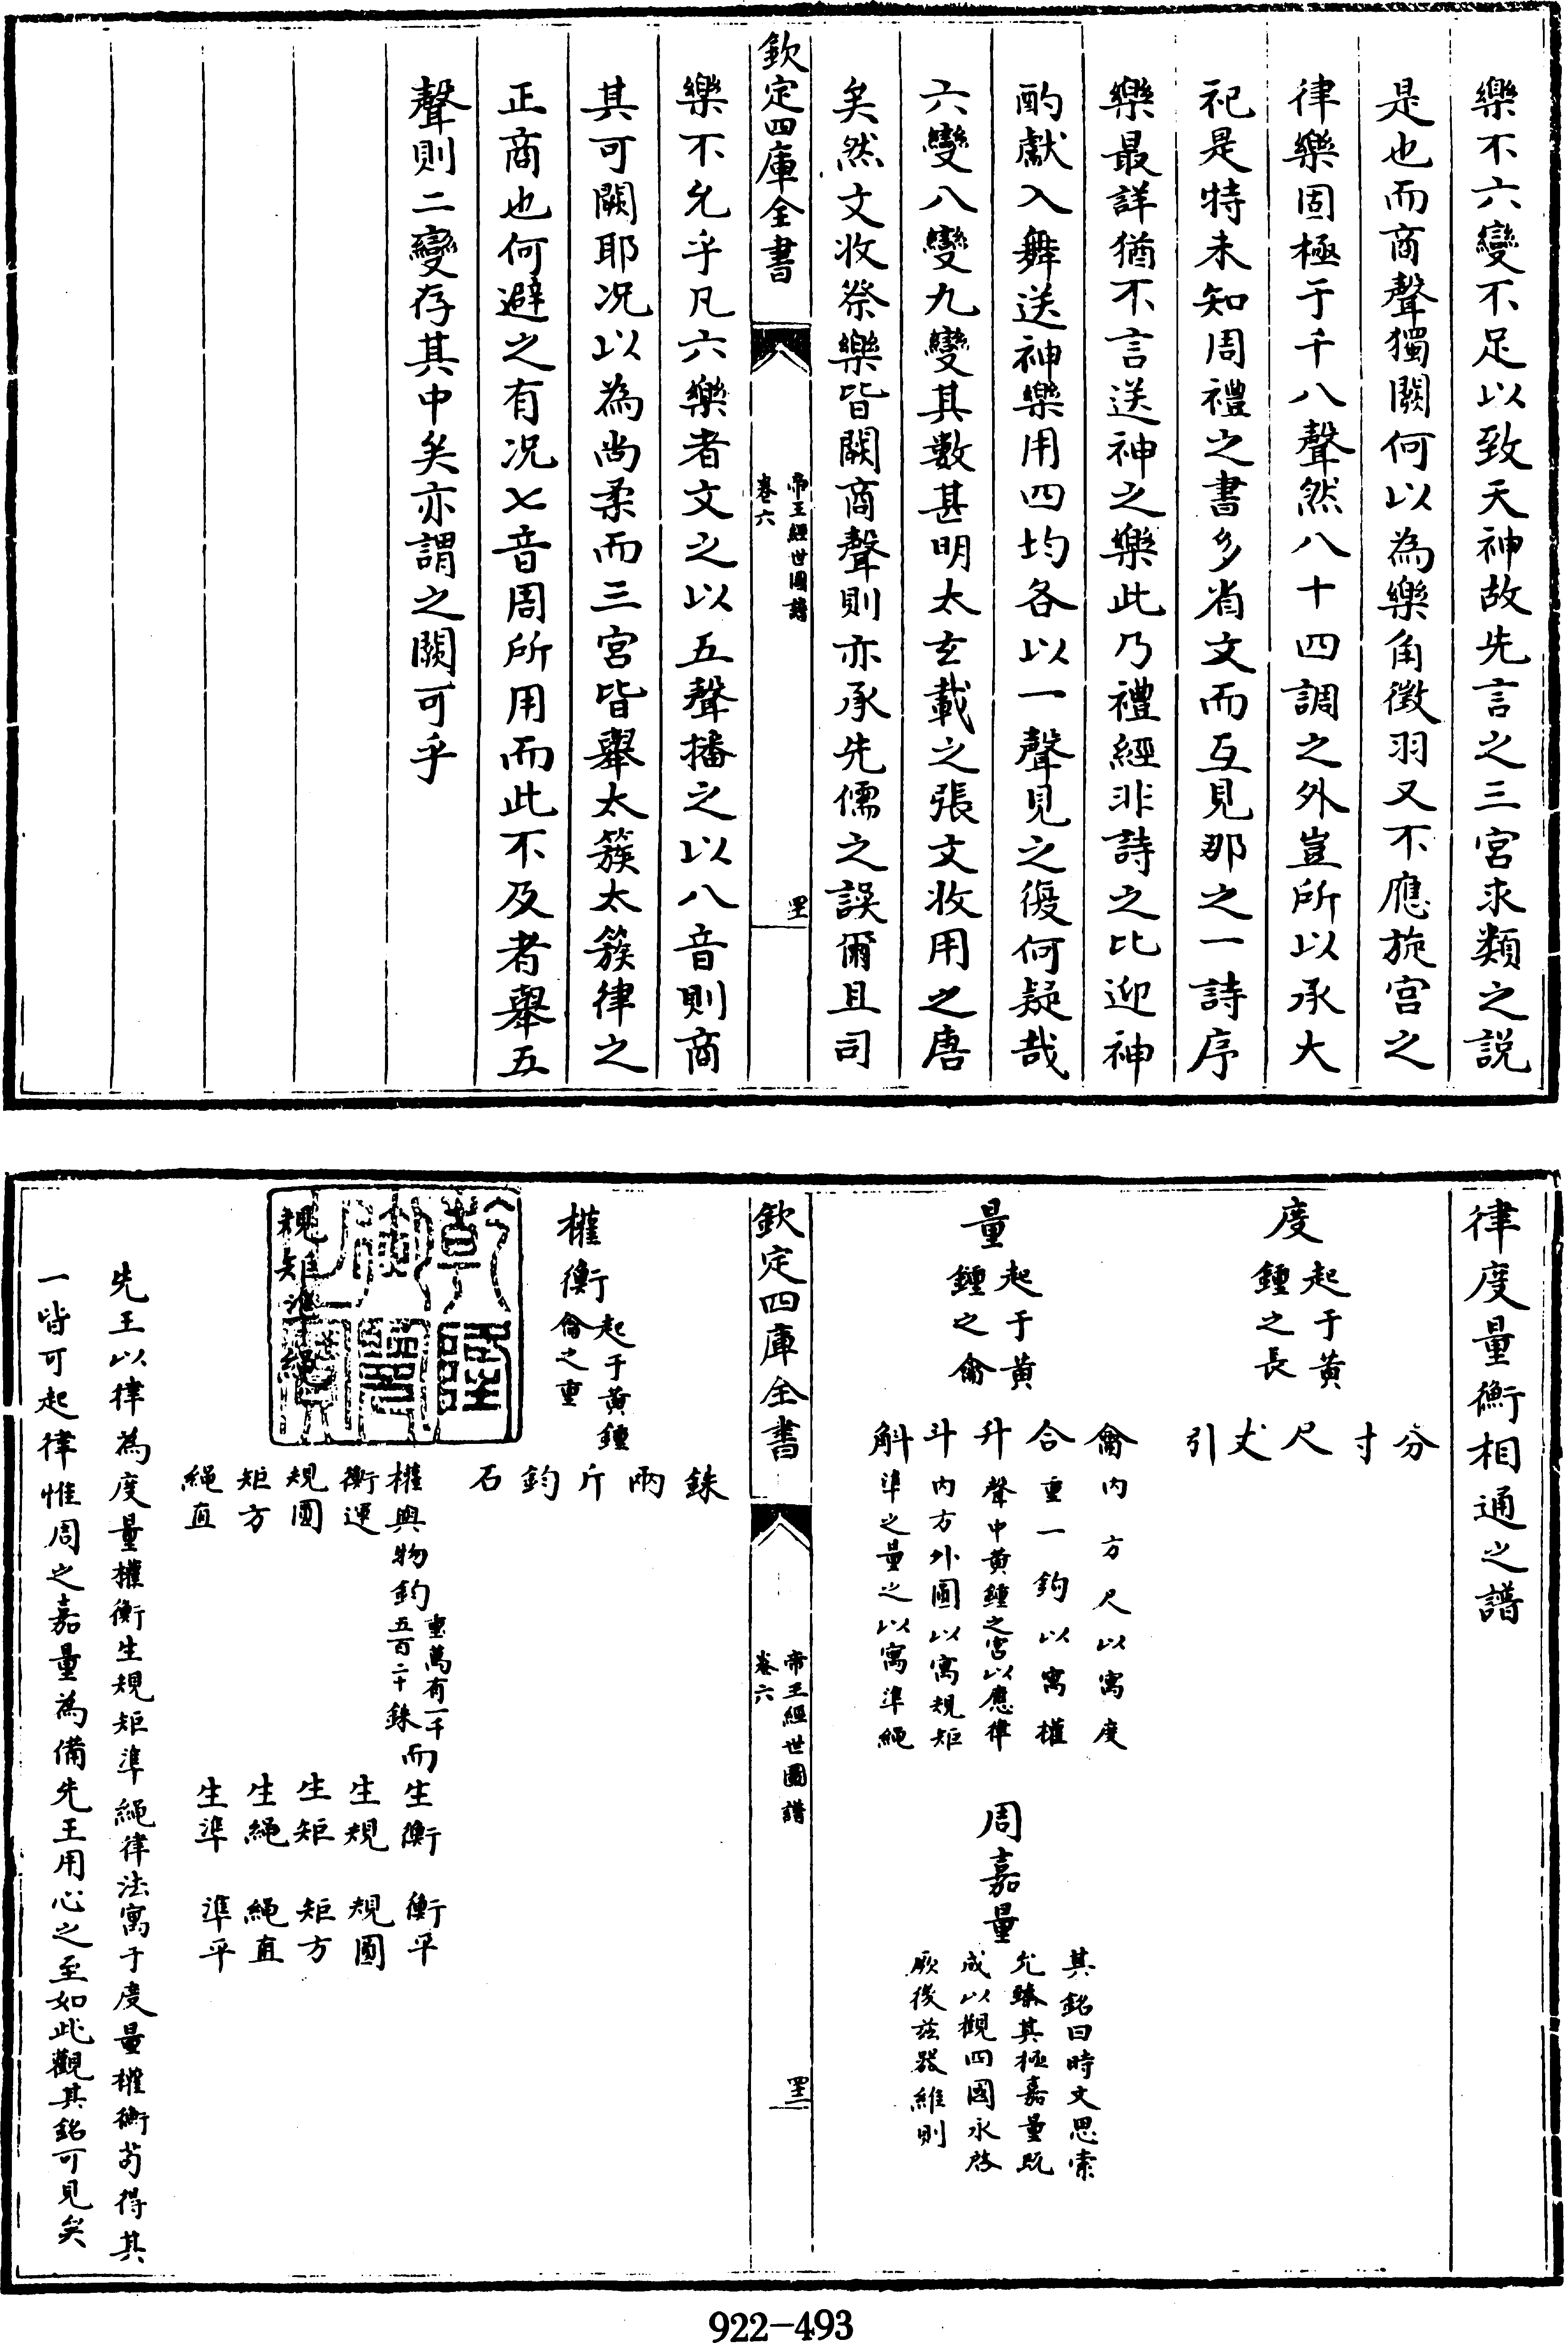 樂不六變不足以致天神故先言之三宮求類之說
是也而商聲獨闕何以為樂角徵羽又不應旋宮之
律樂固極于千八聲然八十四調之外豈所以承大
祀是特未知周禮之書多省文而互見那之一詩序
樂最詳猶不言送神之樂此乃禮經非詩之比迎神
酌獻入舞送神樂用四均各以一聲見之復何疑哉
六變八變九變其數甚明太玄載之張文收用之唐
矣然文收祭樂皆闕商聲則亦承先儒之誤爾且司
欽定四庫全書
帝王經世圖譜
卷六
樂不允乎凡六樂者文之以五聲播之以八音則商
其可闕耶况以為尚柔而三宮皆舉太簇太簇律之
正商也何避之有况七音周所用而此不及者舉五
聲則二變存其中矣亦謂之闕可乎
律度量衡相通之譜
度
起于黃
鍾之長
分
寸
尺
丈
引
量
起于黃
鍾之龠
龠內方尺以寓度
合重一鈞以寓權
升聲中黃鍾之宮以應律
斗內方外圓以寓規矩
斛準之量之以寓準繩
周嘉量
其銘曰時文思索
允臻其極嘉量既
成以觀四國永啓
厥後茲器維則
欽定四庫全書
帝王經世圖譜
卷六
權衡
起于黃鍾
龠之重
銖
兩
斤
鈞
石
規矩準繩
權與物鈞
重萬有一千
五百二十銖
而生衡 衡平
衡運 生規 規圓
規圓 生矩 矩方
矩方 生繩 繩直
繩直 生準 準平
先王以律為度量權衡生規矩準繩律法寓于度量權衡茍得其
一皆可起律惟周之嘉量為備先王用心之至如此觀其銘可見矣
922-493